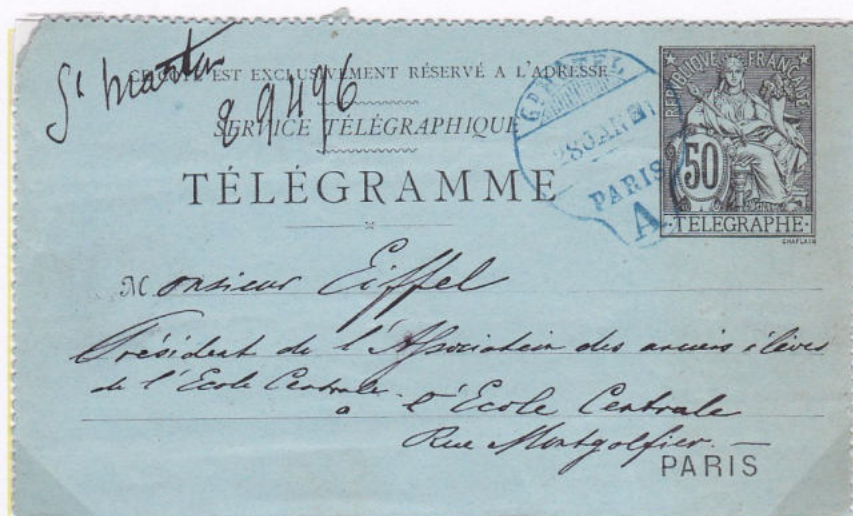 CE CÔTÉ EST EXCLUSIVEMENT RÉSERVÉ A L'ADRESSE
St Martin
89496
SERVICE TÉLÉGRAPHIQUE
TÉLÉGRAMME
28 JAN
PARIS
A
REPUBLIQUE FRANÇAISE
50
TELEGRAPHE
CHAPLAIN
Monsieur Eiffel
Président de l'Association des anciens élèves
de l'Ecole Centrale.
a l'Ecole Centrale
Rue Montgolfier. —
PARIS